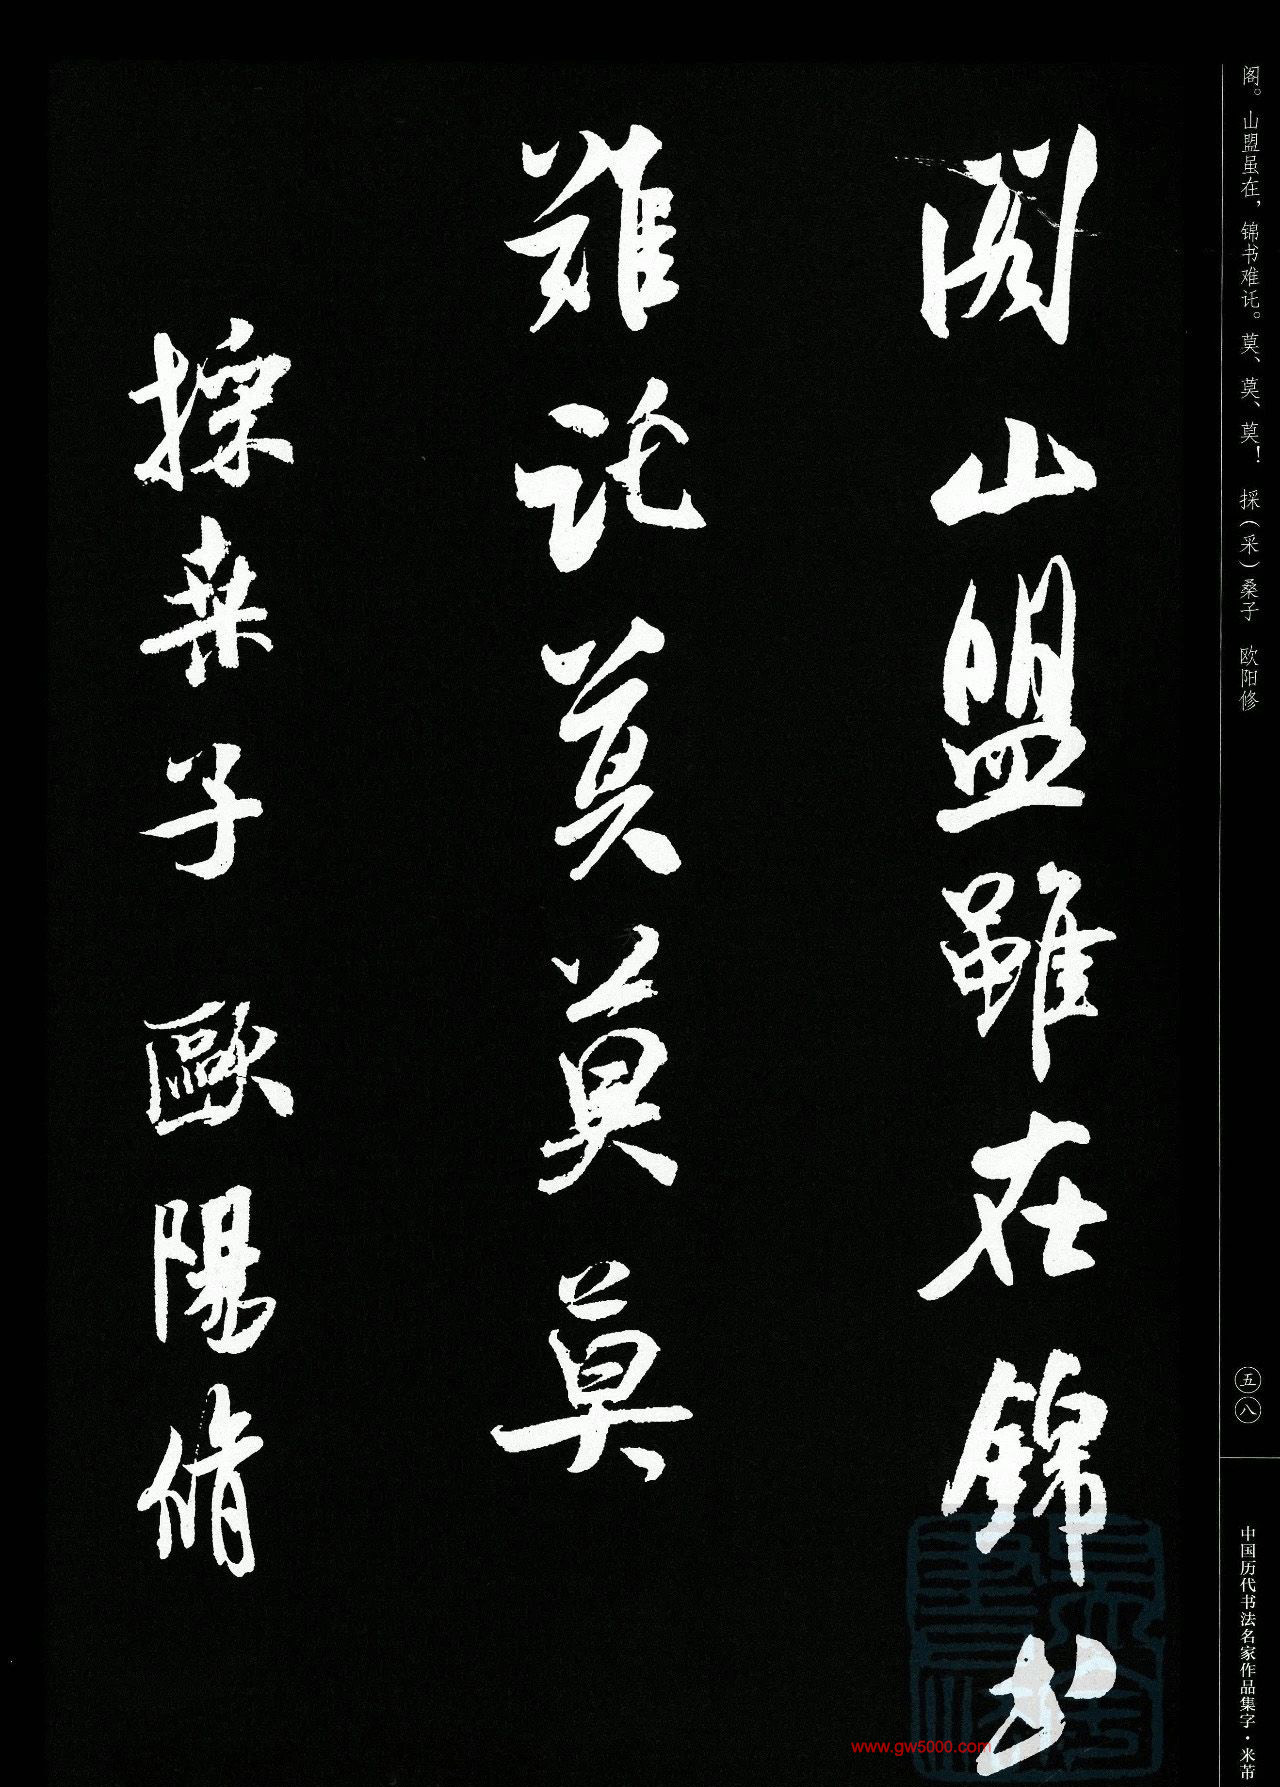 阁。山盟虽在，锦书难讬。莫、莫、莫！ 採（采）桑子 欧阳修
五八
中国历代书法名家作品集字·米芾
閣山盟雖在錦书
難託莫莫莫
採桒子 歐陽脩
www.gw5000.com